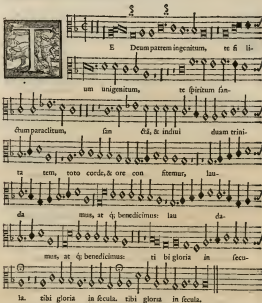 T E Deum patrem ingenitum, te fi li-
um unigenitum, te ſpiritum ſan-
ctum paraclitum, ſan ctā, & indiui duam trini-
ta tem, toto corde, & ore con fitemur, lau-
da mus, at q; benedicimus: lau da-
mus, at q; benedicimus: ti bi gloria in ſecu-
la. tibi gloria in ſecula. tibi gloria in ſecula.